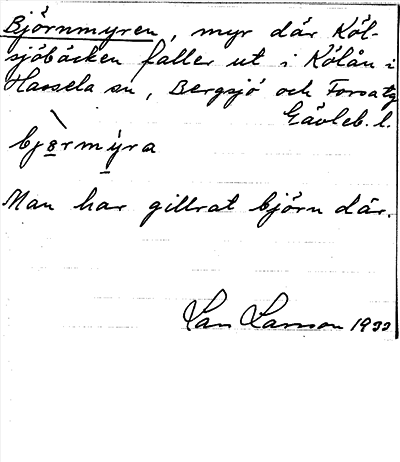 Björnmyren, myr där Köl-
sjöbäcken faller ut i Kölån i
Hassela sn, Bergsjö och Forsa tg
Gävleb. l.
bjørmýra
Man har gillrat björn där.
Lars Larsson 1933